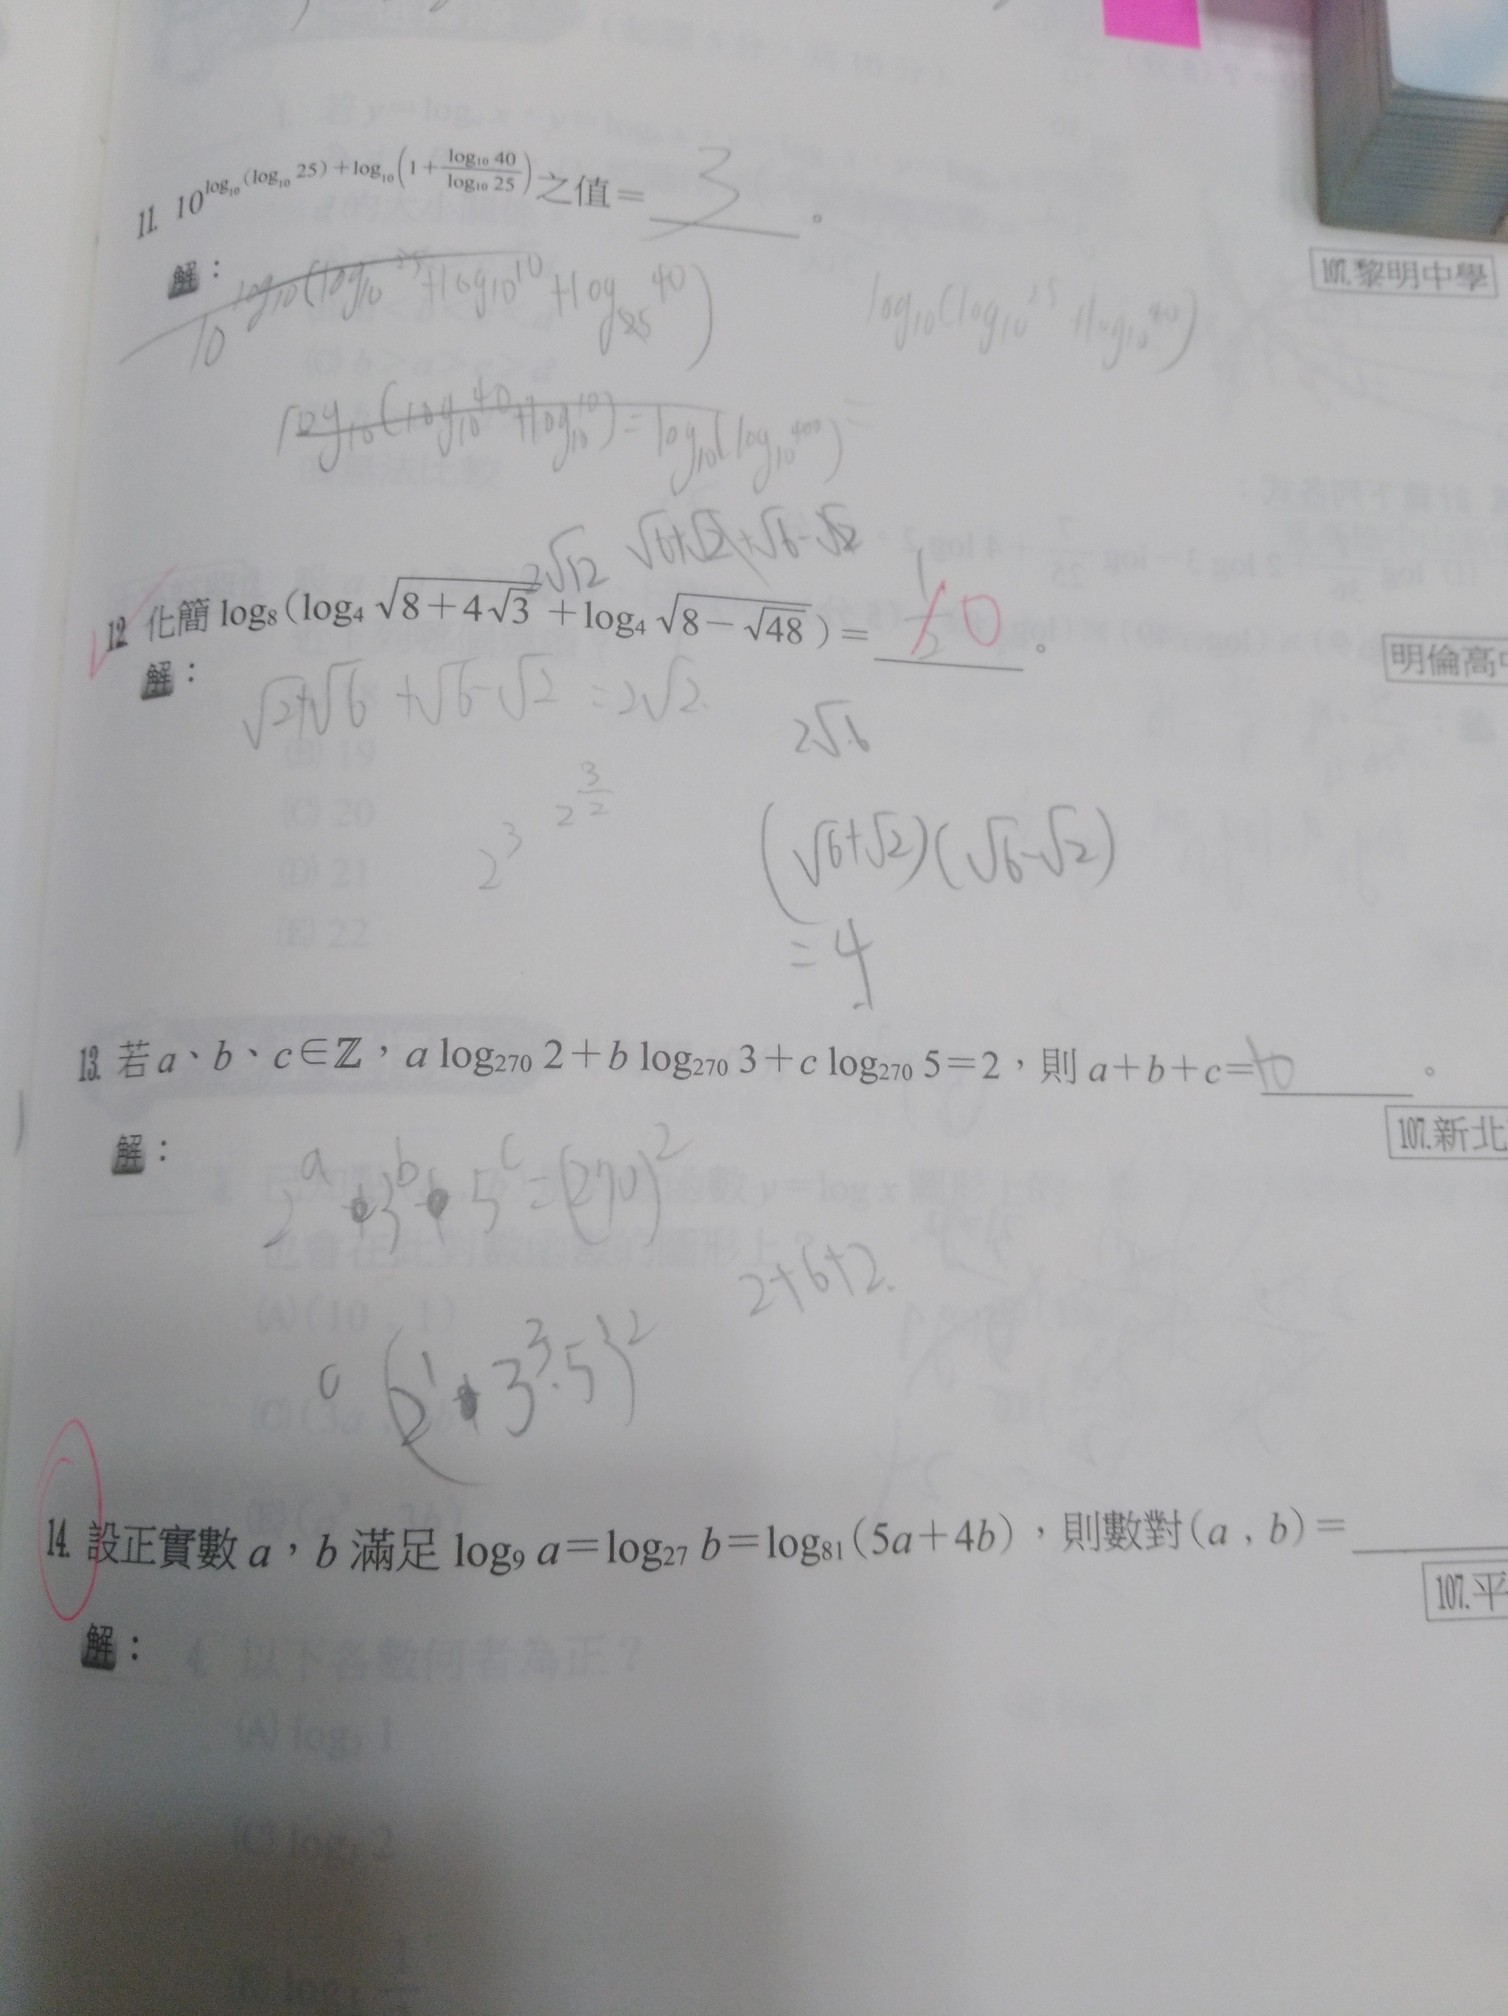 11. 10^{log₁₀(log₁₀ 25)+log₁₀(1+\frac{log₁₀ 40}{log₁₀ 25})} 之值= 3 。
100.黎明中學
解：
10^{log₁₀(log₁₀25+log₁₀10+log₂₅40)}
log₁₀(log₁₀25+log₁₀40)
log₁₀(log₁₀40+log₁₀10)=log₁₀(log₁₀400)=
2√12 √6+√2+√6-√2
12. 化簡 log₈(log₄ √(8+4√3) + log₄ √(8-√48)) = 0 。
明倫高中
解：
√2+√6+√6-√2=2√2
2√6
2^3 2^{3/2}
(√6+√2)(√6-√2)
=4
13. 若 a、b、c∈ℤ，a log₂₇₀ 2+b log₂₇₀ 3+c log₂₇₀ 5=2，則 a+b+c= 10 。
107.新北
解：
2^a·3^b·5^c=(270)^2
2+6+2
(2^1·3^3·5^1)^2
14. 設正實數 a，b 滿足 log₉ a=log₂₇ b=log₈₁ (5a+4b)，則數對(a , b)=
107.平
解：